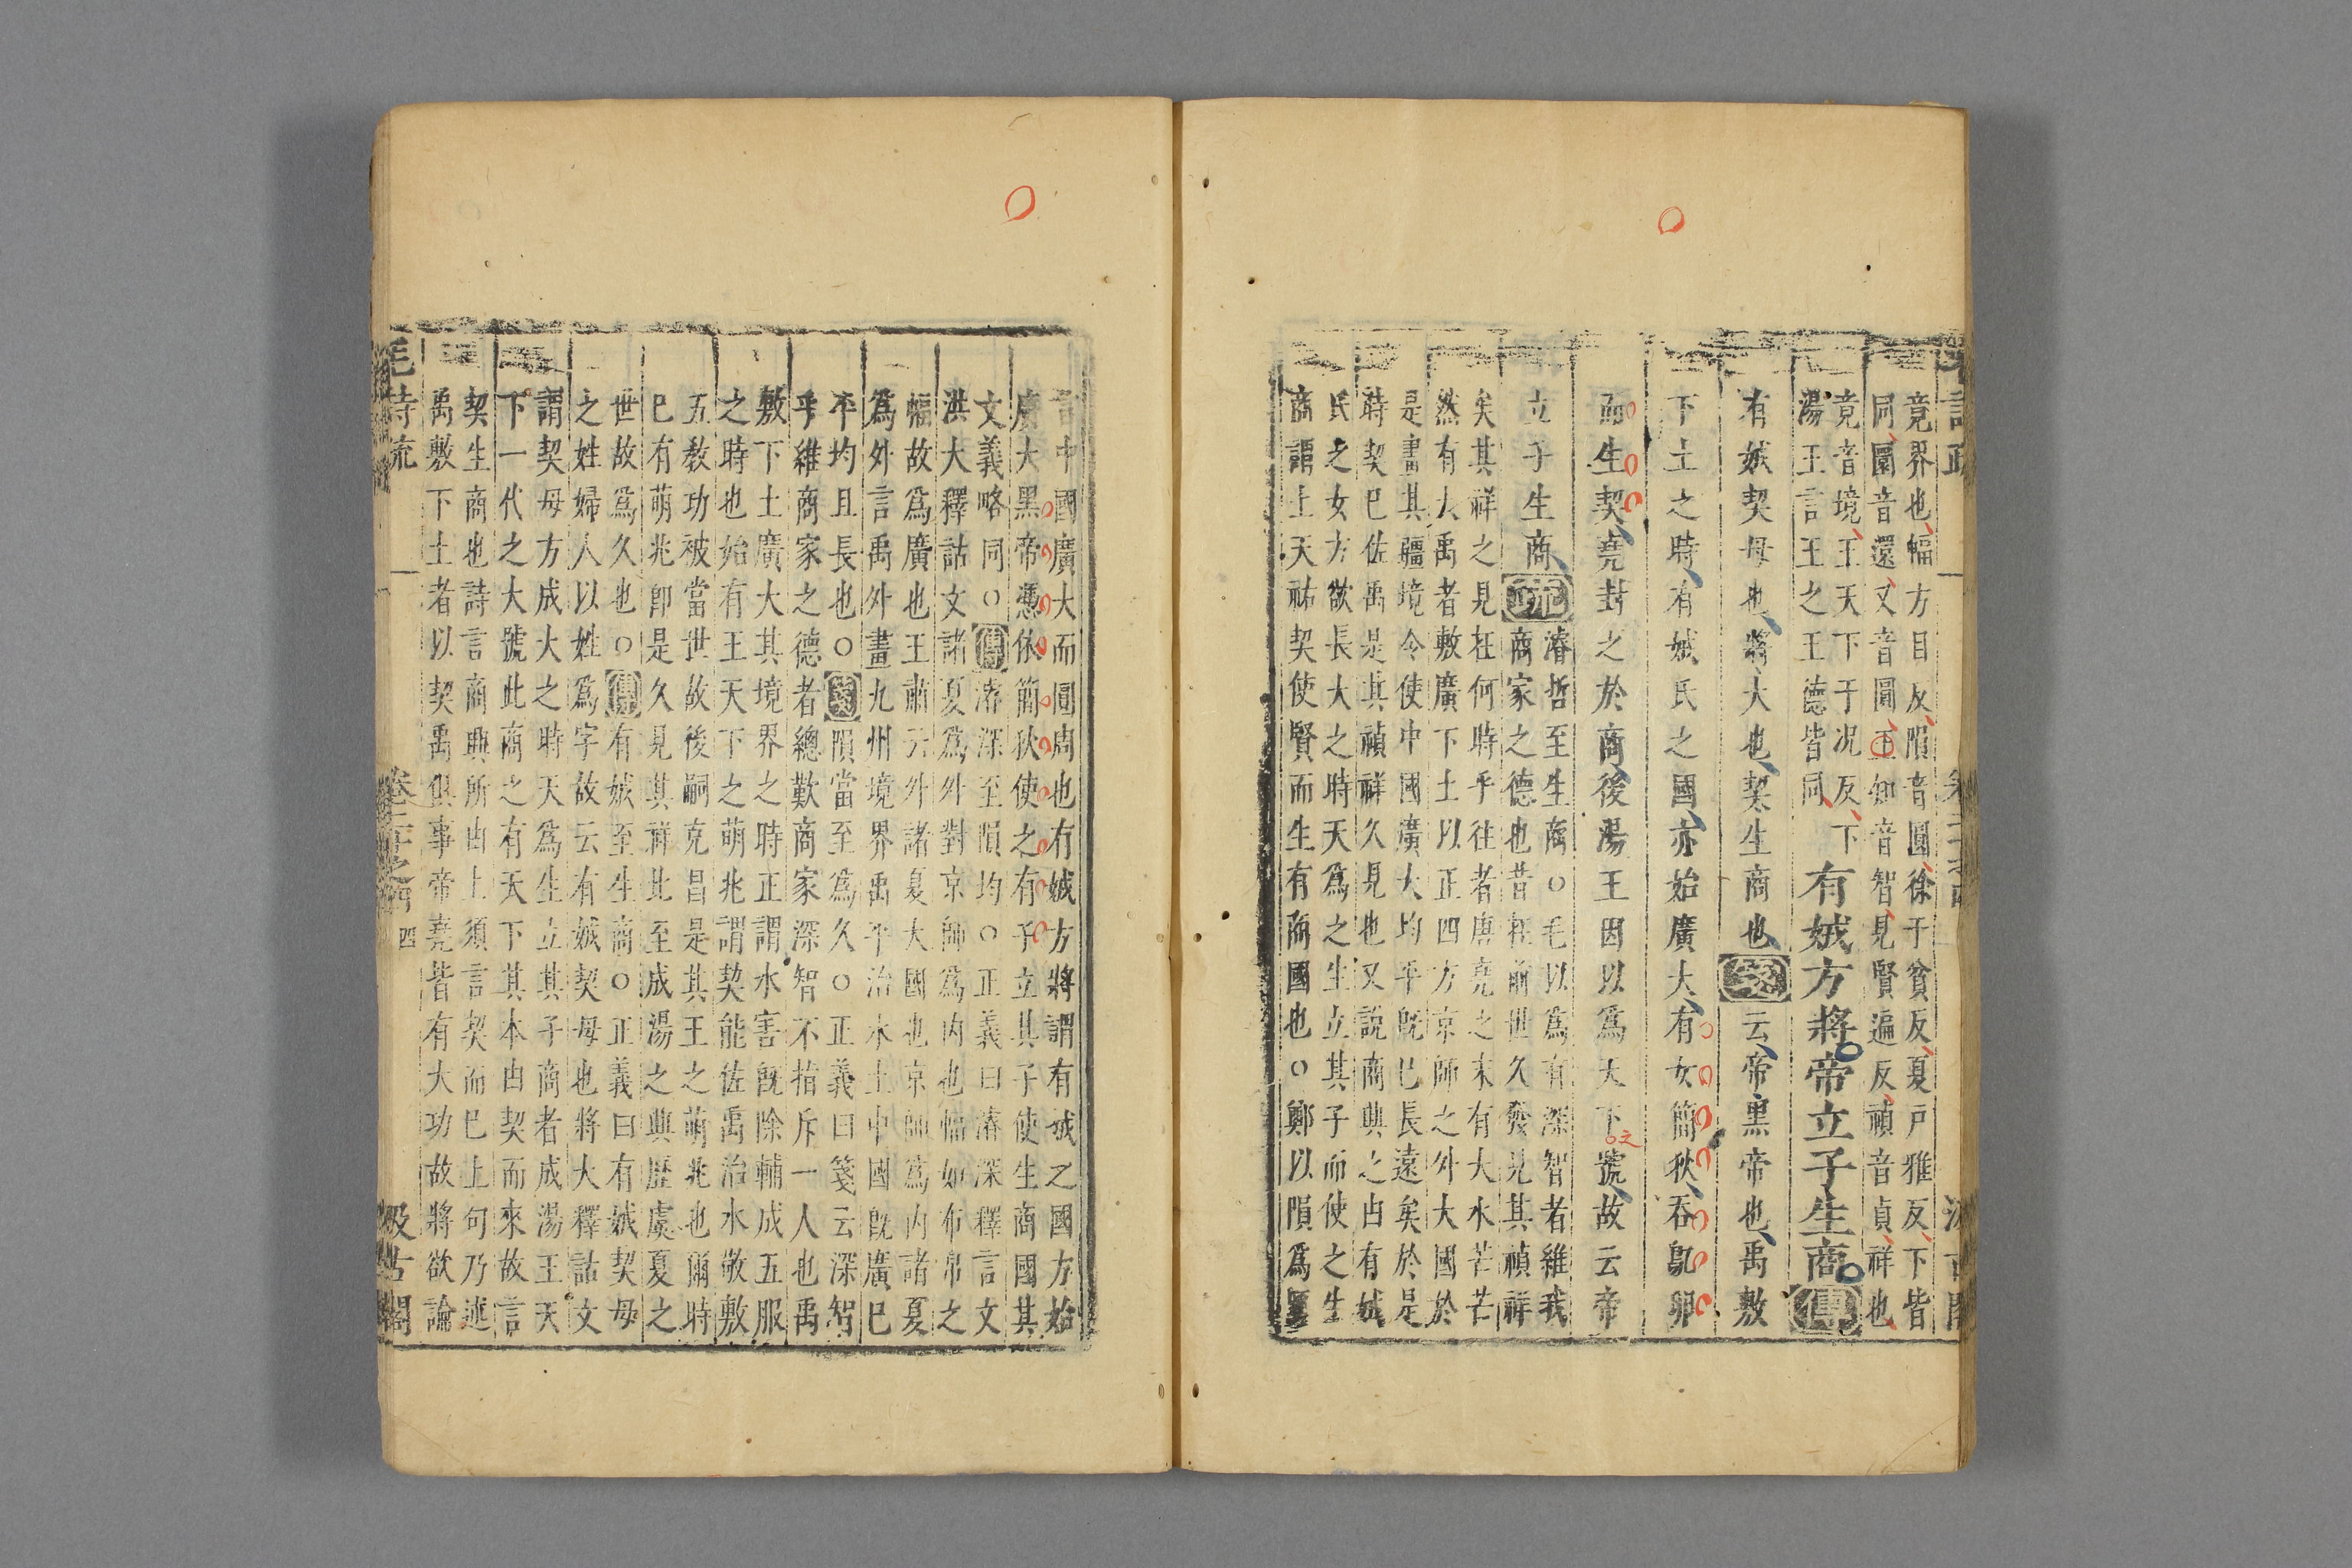 毛詩疏
卷二十之四
汲古閣
竟界也幅方目反隕音圓徐于貧反夏戸雅反下皆
同圜音還又音圓王知音智見賢遍反禎音貞祥也
竟音境王天下于况反下
湯王言王之王德皆同
有娀方將帝立子生商傳
有娀契母也將大也契生商也箋云帝黑帝也禹敷
下土之時有娀氏之國亦始廣大有女簡狄吞鳦卵
而生契堯封之於商後湯王因以爲天下號故云帝
之
立子生商疏
濬哲至生商○毛以爲有深智者維我
商家之德也昔在前世久發見其禎祥
矣其祥之見在何時乎往者唐堯之末有大水芒芒
然有大禹者敷廣下土以正四方京師之外大國於
是畫其疆境令使中國廣大均平旣巳長遠矣於是
時契巳佐禹是其禎祥久見也又說商興之由有娀
氏之女方欲長大之時天爲之生立其子而使之生
商謂上天祐契使賢而生有商國也○鄭以隕爲圓
言中國廣大而圓周也有娀方將謂有娀之國方始
廣大黑帝憑依簡狄使之有子立其子使生商國其
文義略同○傳濬深至隕均○正義曰濬深釋言文
洪大釋詁文諸夏爲外對京師爲内也幅如布帛之
幅故爲廣也王肅云外諸夏大國也京師爲内諸夏
爲外言禹外畫九州境界禹平治水土中國旣廣巳
平均且長也○箋隕當至爲久○正義曰箋云深智
乎維商家之德者總歎商家深智不指斥一人也禹
敷下土廣大其境界之時正謂水害旣除輔成五服
之時也始有王天下之萌兆謂契能佐禹治水敬敷
五教功被當世故後嗣克昌是其王之萌兆也爾時
巳有萌兆卽是久見其祥比至成湯之興歷虞夏之
世故爲久也○傳有娀至生商○正義曰有娀契母
之姓婦人以姓爲字故云有娀契母也將大釋詁文
謂契母方成大之時天爲生立其子商者成湯王天
下一代之大號此商之有天下其本由契而來故言
契生商也詩言商興所由止須言契而巳上句乃述
禹敷下土者以契禹俱事帝堯皆有大功故將欲論
毛詩疏
卷二十之四
四
汲古閣